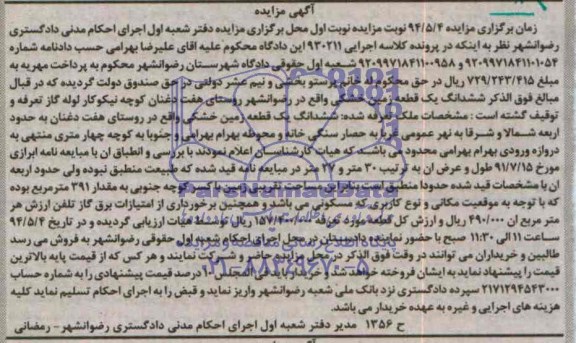 آگهی مزایده
زمان برگزاری مزایده ۹۴/۵/۴ نوبت مزایده نوبت اول محل برگزاری مزایده دفتر شعبه اول اجرای احکام مدنی دادگستری
رضوانشهر نظر به اینکه در پرونده کلاسه اجرایی ۹۳۰۲۱۱ این دادگاه محکوم علیه اقای علیرضا بهرامی حسب دادنامه شماره
۹۲۰۹۹۷۱۸۴۱۱۰۱۰۵۴ و ۹۲۰۹۹۷۱۸۴۱۱۰۰۹۵۸ شعبه اول حقوقی دادگاه شهرستان رضوانشهر محکوم به پرداخت مهریه به
مبلغ ۷۲۹/۲۴۳/۴۱۵ ریال در حق محکوم له خانم پرستو بخشی و نیم عشر دولتی در حق صندوق دولت گردیده که در قبال
مبالغ فوق الذکر ششدانگ یک قطعه زمین خشکی واقع در رضوانشهر روستای هفت دغنان کوچه نیکوکار لوله گاز تعرفه و
توقیف گشته است : مشخصات ملک تعرفه شده: ششدانگ یک قطعه زمین خشکی واقع در روستای هفت دغنان به حدود
اربعه شمالا و شرقا به نهر عمومی غربا به حصار سنگی خانه و محوطه بهرام بهرامی و جنوبا به کوچه چهار متری منتهی به
دروازه ورودی بهرام بهرامی محدود می باشد که هیات کارشناسان اعلام نمودند با بررسی و انطباق ان با مبایعه نامه ابرازی
مورخ ۹۱/۷/۱۵ طول و عرض ان به ترتیب ۳۰ متر و ۲۷ متر در مبایعه نامه قید شده که طبیعت منطبق نبوده ولی حدود اربعه
ان با مشخصات قید شده حدودا منطبق است بنابراین مساحت تقریبی پس از کسر کوچه جنوبی به مقدار ۳۹۱ مترمربع بوده
که با توجه به موقعیت مکانی و نوع کاربری که مسکونی می باشد و همچنین برخورداری از امتیازات برق گاز تلفن ارزش هر
متر مربع ان ۴۹۰/۰۰۰ ریال و ارزش کل قطعه مورد تعرفه ریال توسط هیات ارزیابی گردیده و در تاریخ ۹۴/۵/۴
ساعت ۱۱ الی ۱۱:۳۰ صبح با حضور نماینده دادستان در محل اجرای احکام شعبه اول حقوقی رضوانشهر به فروش می رسد
طالبین و خریداران می توانند در وقت فوق الذکر در محل مزایده حاضر و شرکت نمایند و هر کس که از قیمت پایه بالاترین
قیمت را پیشنهاد نماید به ایشان فروخته خواهد شد و خریدار باید فی المجلس ۱۰ درصد قیمت پیشنهادی را به شماره حساب
۲۱۷۱۲۹۴۵۴۳۰۰۰ سپرده دادگستری نزد بانک ملی شعبه رضوانشهر واریز نماید و قبض را به اجرای احکام تسلیم نماید کلیه
هزینه های اجرایی و غیره به عهده خریدار می باشد.
ح ۱۳۵۶ مدیر دفتر شعبه اول اجرای احکام مدنی دادگستری رضوانشهر- رمضانی